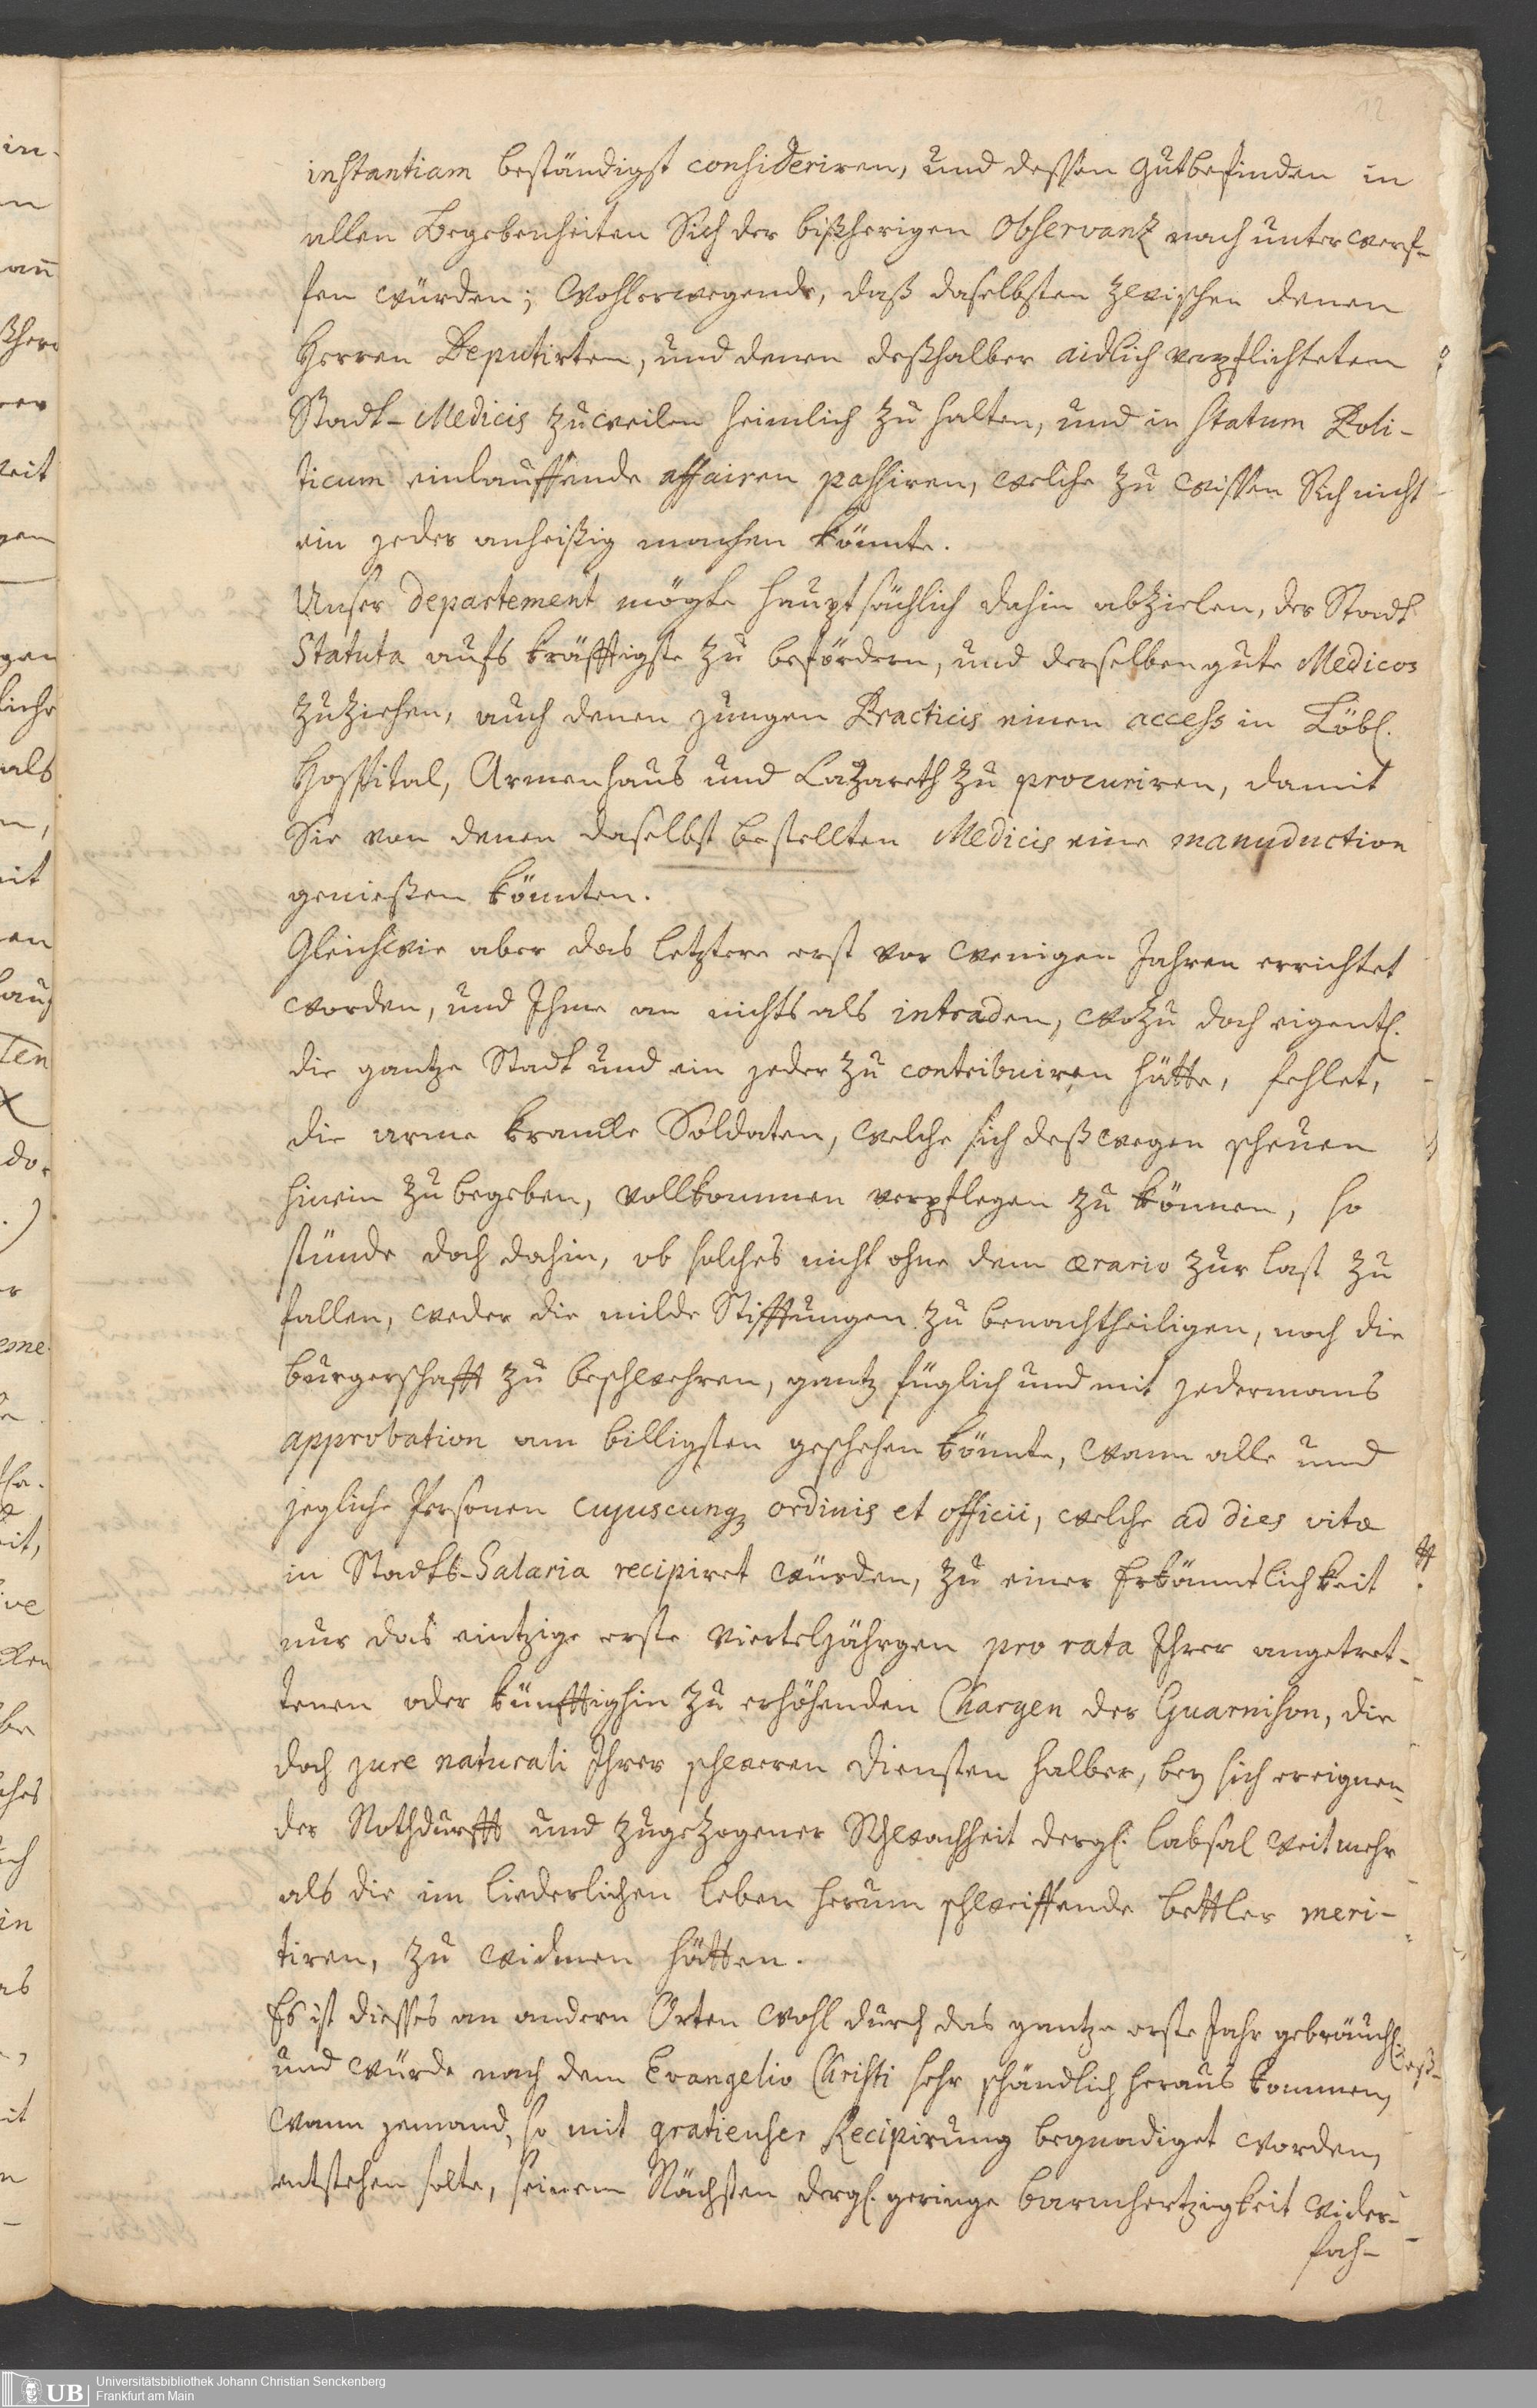 12
instantiam beständigst consideriren, und dessen gutbefinden in
allen Begebenheiten Sich der bißherigen Observantz nach unterwerf-
fen würden; Wohlerwegende, daß daselbsten zwischen denen
Herren Deputirten, und denen deßhalber aidlich verpflichteten
Stadt-Medicis zuweilen heimlich zu halten, und in statum Poli-
ticum einlauffende affairen passiren, welche zu wissen Sich nicht
ein jeder anheißig machen könnte.
Unser departement mögte hauptsächlich dahin abzielen, der Stadt
Statuta aufs kräfftigste zu befördern, und derselben gute Medicos
zuziehen, auch denen jungen Practicis einen access in Löbl.
Hospital, Armenhaus und Lazareth zu procuriren, damit
Sie von denen daselbst bestellten Medicis eine manuduction
genießen könnten.
Gleichwie aber das letztere erst vor wenigen Jahren errichtet
worden, und Ihme an nichts als intraden, wozu doch eigentl.
die gantze Stadt und ein jeder zu contribuiren hätte, fehlet,
die arme krancke Soldaten, welche sich deßwegen scheuen
hinein zu begeben, vollkommen verpflegen zu können, so
stünde doch dahin, ob solches nicht ohne dem ærario zur last zu
fallen, weder die milde Stifftungen zu benachtheiligen, noch die
burgerschafft zu beschwehren, gantz füglich und mit jedermans
approbation am billigsten geschehen könnte, wann alle und
jegliche Personen cujuscunq; ordinis et officii, welche ad dies vitæ
in Stadts-Salaria recipiret würden, zu einer Erkänntlichkeit
nur das eintzige erste Vierteljährgen pro rata Ihrer angetret-
tenen oder künfftighin zu erhöhenden Chargen der Guarnison, die
doch jure naturali Ihrer schweren Diensten halber, bey sich ereignen-
der Nothdurfft und zugezogener Schwachheit dergl. labsal weit mehr
als die im liederlichen leben herum schweiffende bettler meri-
tiren, zu widmen hätten.
Es ist dieses an andern Orten wohl durch das gantze erste Jahr gebräuchl.
und würde nach dem Evangelio Christi sehr schändlich heraus kommen,
wann jemand, so mit gratieuser Recipirung begnadiget worden,
entstehen solte, seinem Nächsten dergl. geringe barmhertzigkeit wider-
fah-
UB
Universitätsbibliothek Johann Christian Senckenberg
Frankfurt am Main